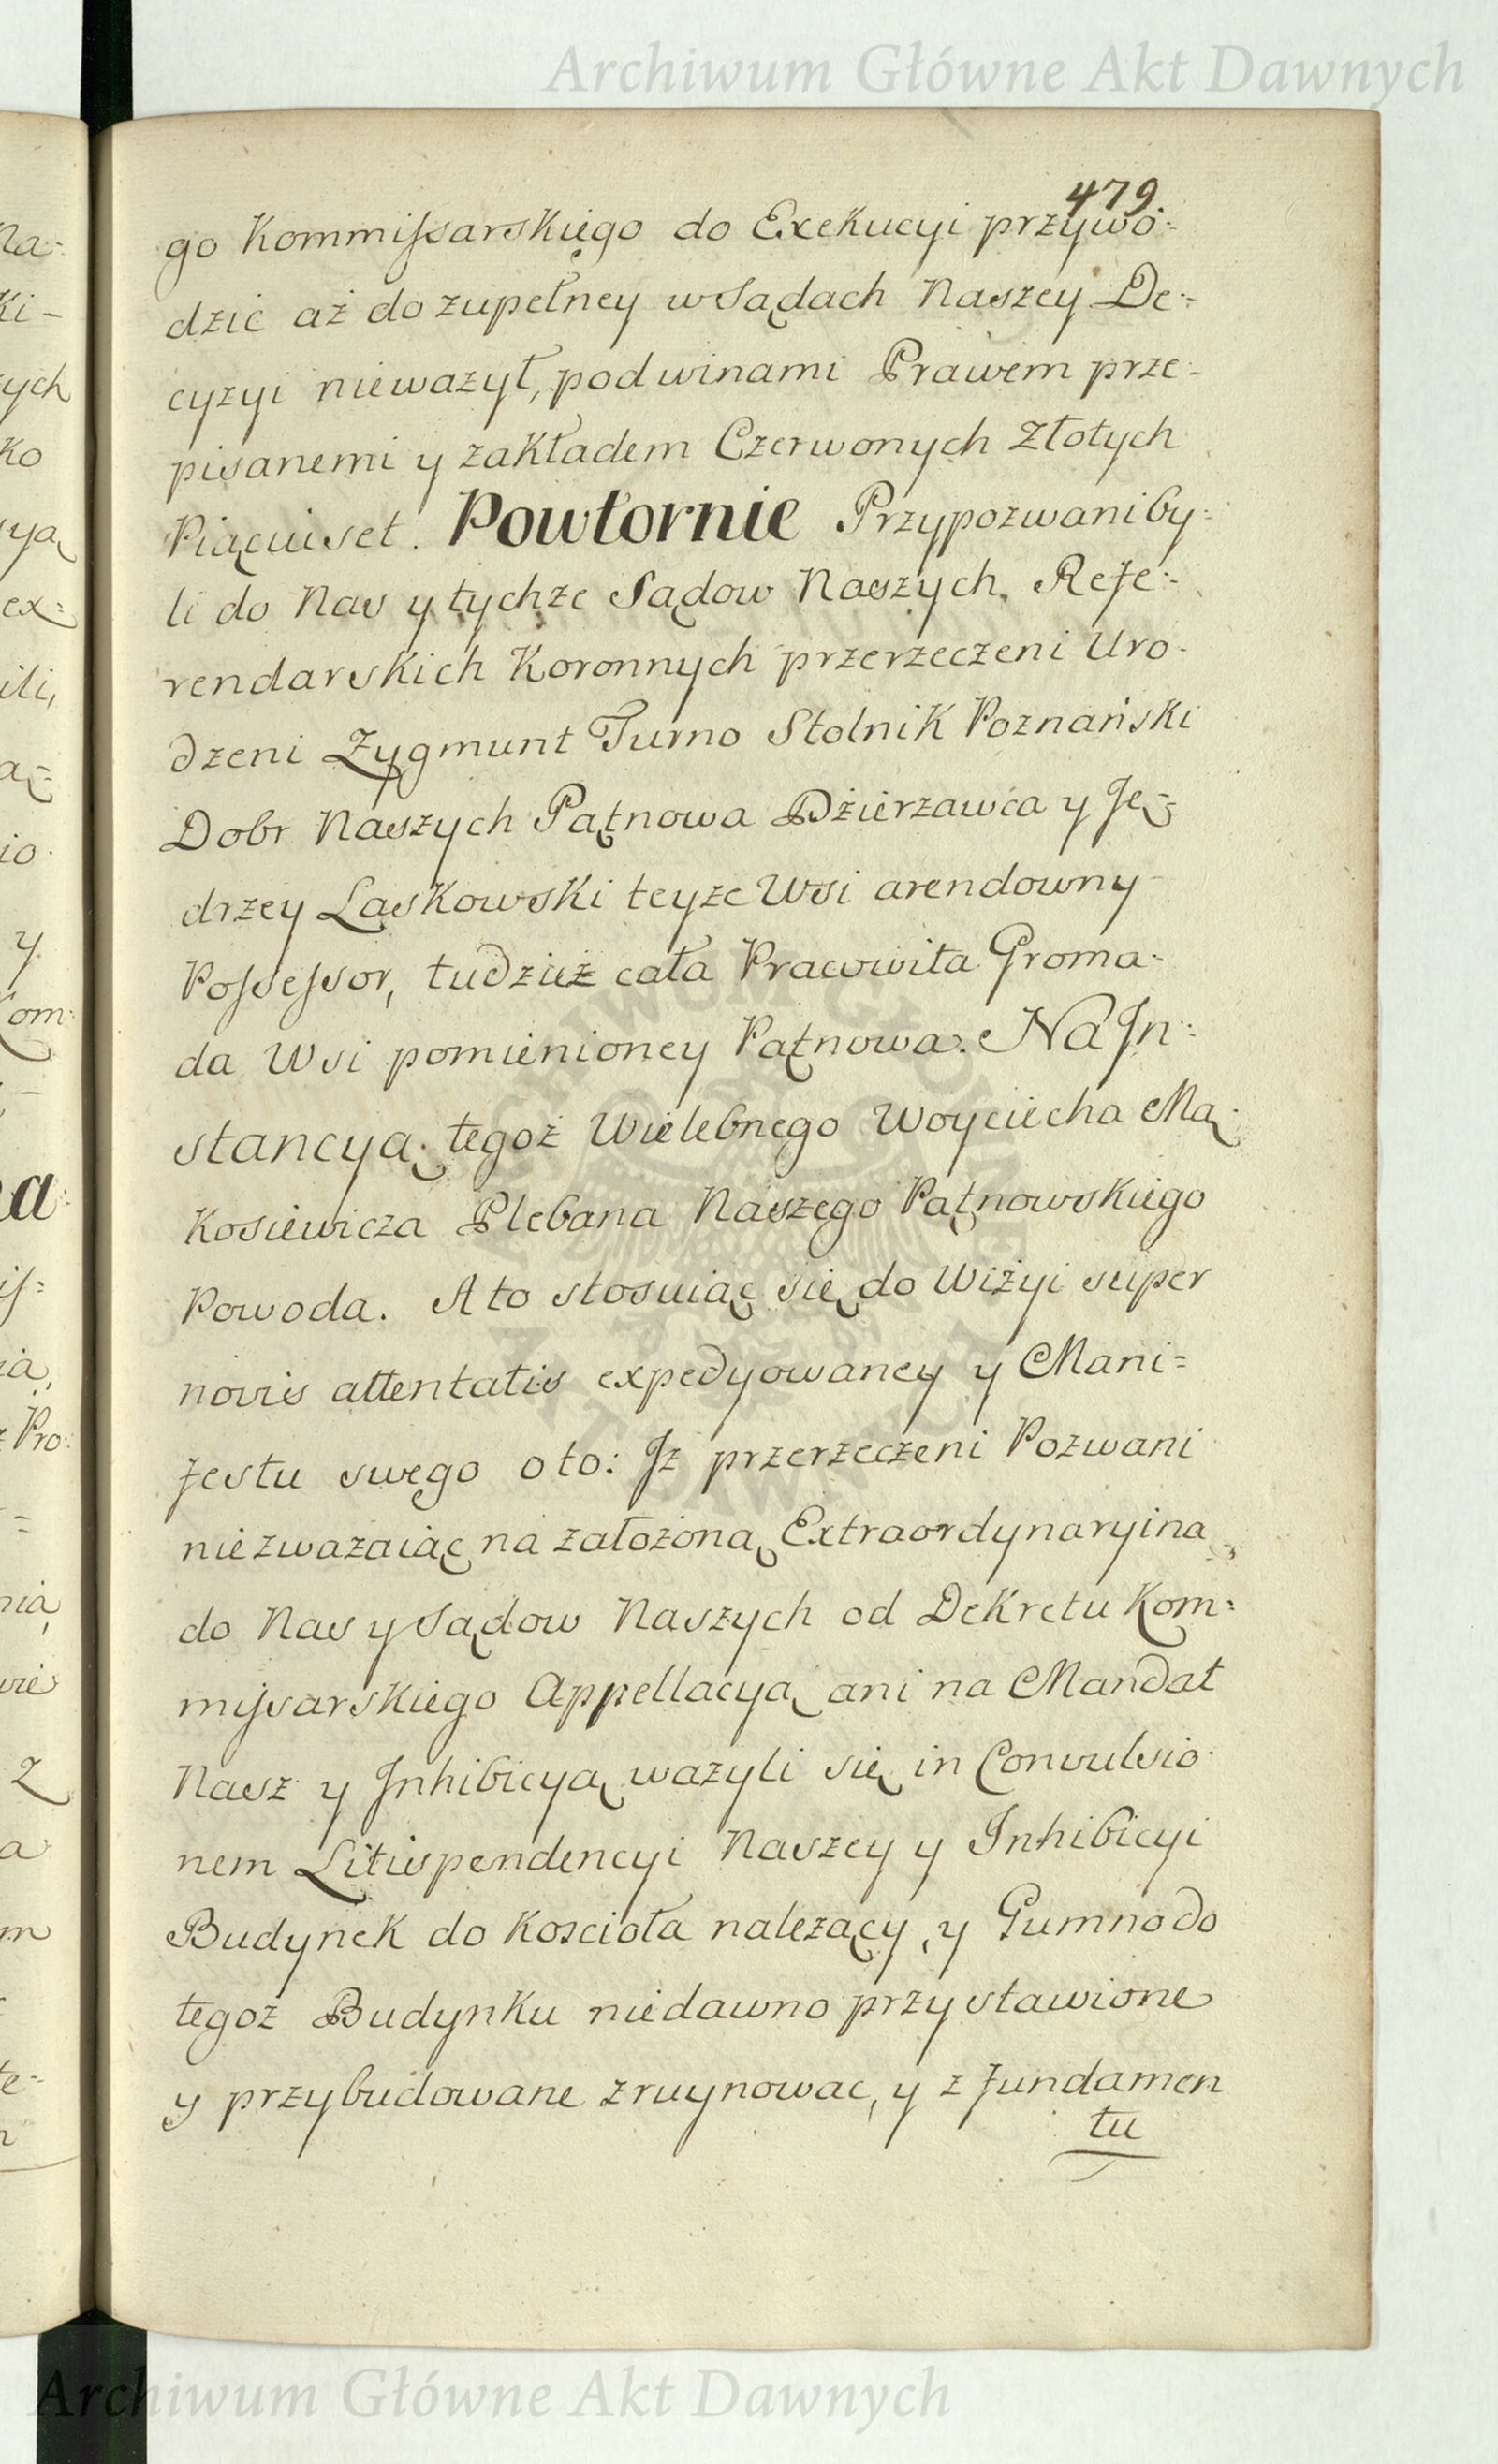 Archiwum Główne Akt Dawnych
479
go Kommissarskiego do Exekucyi przywo:
dzić aż do zupełney w Sądach Naszey De:
cyzyi nieważył, pod winami Prawem prze-
pisanemi y zakładem Czerwonych Złotych
Piąciuset. Powtornie Przypozwani by:
li do Nas y tychże Sądow Naszych Refe:
rendarskich Koronnych przerzeczeni Uro-
dzeni Zygmunt Turno Stolnik Poznański
Dobr Naszych Pątnowa Dzierzawca y Ję=
drzey Laskowski teyże Wsi arendowny
Possessor, tudzież cała Pracowita Groma-
da Wsi pomienioney Pątnowa. Na In:
stancyą tegoż Wielebnego Woyciecha Mą-
kosiewicza Plebana Naszego Pątnowskiego
Powoda. A to stosuiąc się do Wizyi super
novis attentatis expedyowaney y Mani=
festu swego oto: Iż przerzeczeni Pozwani
niezważaiąc na założoną Extraordynaryiną
do Nas y Sądow Naszych od Dekretu Kom:
missarskiego Appellacyą ani na Mandat
Nasz y Inhibicyą ważyli się in Convulsio-
nem Litispendencyi Naszey y Inhibicyi
Budynek do Koscioła należący, y Gumno do
tegoż Budynku niedawno przystawione
y przybudowane zruynować, y z fundamen
tu
Archiwum Główne Akt Dawnych
na:
ki-
ych
ko
yą
ex=
ili,
ą=
io
y
Kom:
a
is=
ią
Pro:
=
nią
wie
Z
a
m
te-